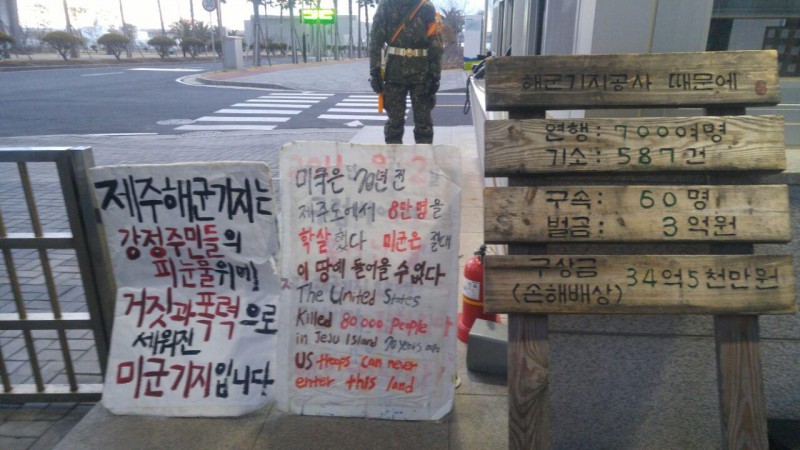 제주해군기지는
강정주민들의
피눈물위에
거짓과폭력으로
세워진
미군기지입니다
미국은 70년 전
제주도에서 8만 명을
학살했다 미군은 절대
이 땅에 들어올 수 없다
The United States
Killed 80000 people
in Jeju Island 70 years ago
US troops can never
enter this land
해군기지공사 때문에
연행: 700여명
기소: 587건
구속: 60명
벌금: 3억원
구상금 34억5천만원
(손해배상)